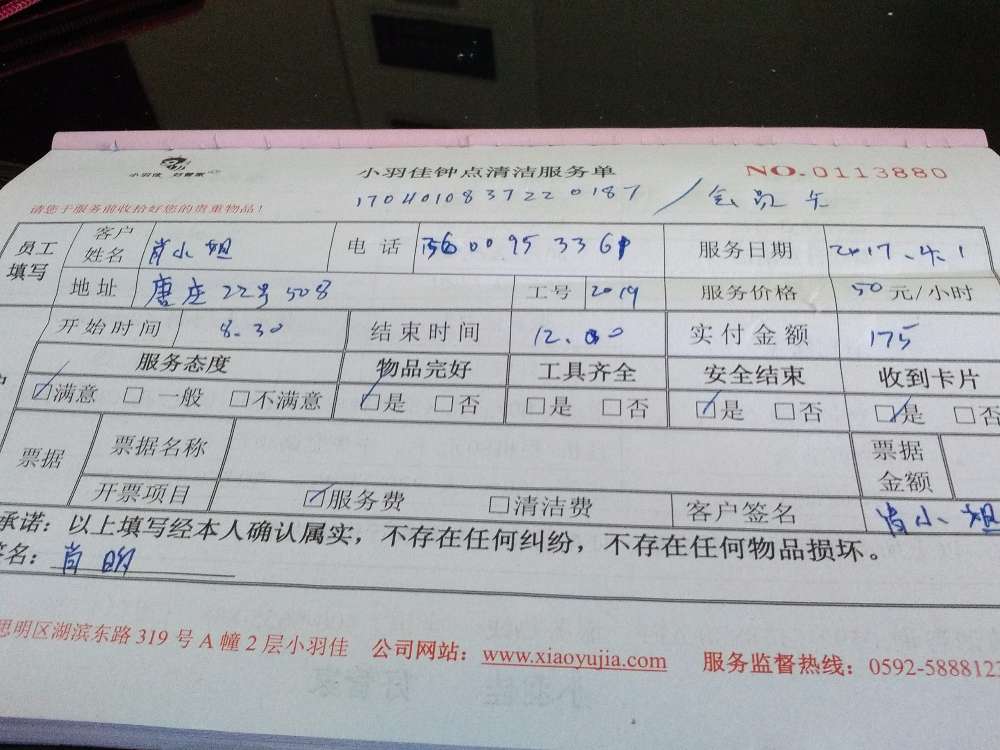 小羽佳 好管家
小羽佳钟点清洁服务单
NO.0113880
请您于服务前收拾好您的贵重物品！
1704010837220187 / 会员卡
员工填写 客户姓名 肖小姐 电话 服务日期 2017.4.1
地址 唐庄22号508 工号 2019 服务价格 50元/小时
开始时间 8.30 结束时间 12.00 实付金额 175
服务态度 物品完好 工具齐全 安全结束 收到卡片
☑满意 □一般 □不满意 ☑是 □否 □是 □否 ☑是 □否 ☑是 □否
票据 票据名称 票据金额
开票项目 ☑服务费 □清洁费 客户签名 肖小姐
承诺：以上填写经本人确认属实，不存在任何纠纷，不存在任何物品损坏。
签名：肖明
思明区湖滨东路319号A幢2层小羽佳 公司网站：www.xiaoyujia.com 服务监督热线：0592-5888123